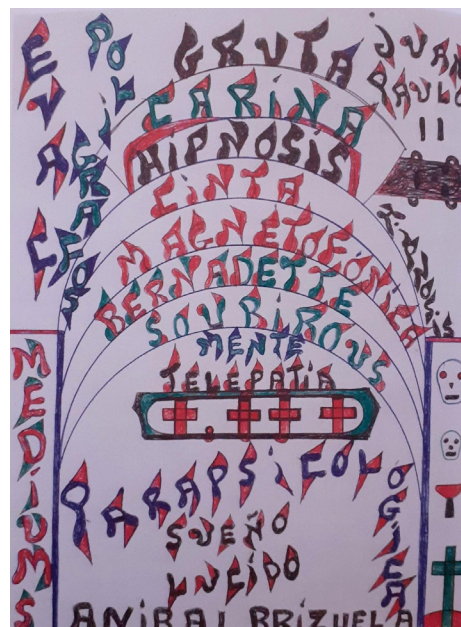 EVA C
POLIGRAFOS
GRUTA
JUAN
PAULO
II
CARINA
HIPNOSIS
CINTA
MAGNETOFÓNICA
BERNADETTE
SOUBIROUS
MENTE
TELEPATÍA
MEDIUMS
PARAPSICOLOGICA
SUEÑO
LUCIDO
ANIBAL BRIZUELA